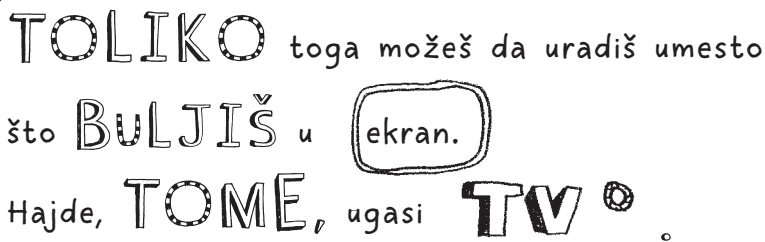 TOLIKO toga možeš da uradiš umesto
što BULJIŠ u ekran.
Hajde, TOME, ugasi TV.